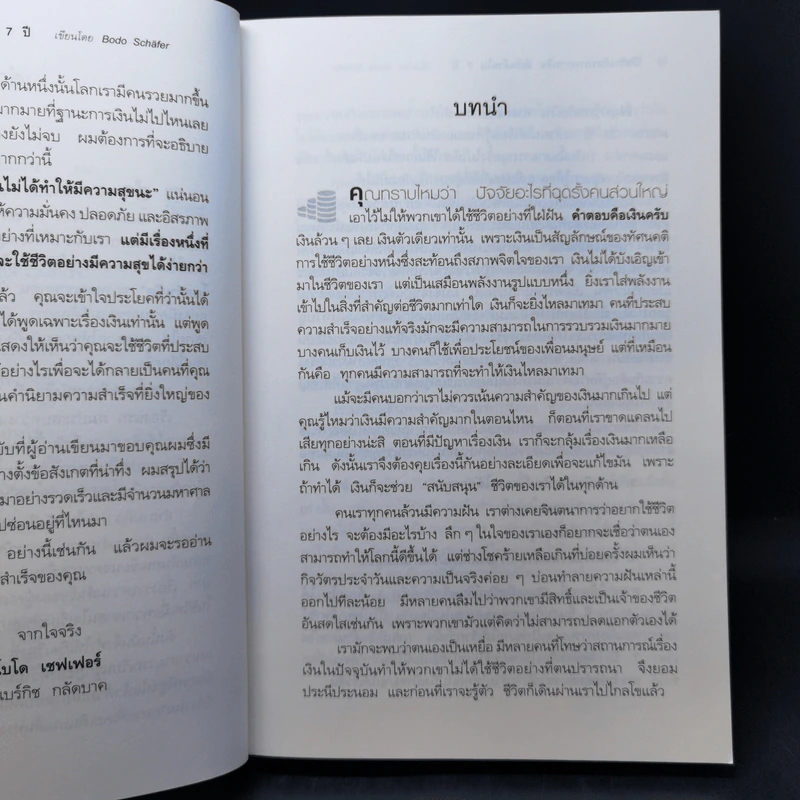 7 ปี เขียนโดย Bodo Schäfer
ด้านหนึ่งนั้นโลกเรามีคนรวยมากขึ้น
มากมายที่ฐานะการเงินไม่ไปไหนเลย
งยังไม่จบ ผมต้องการที่จะอธิบาย
ากกว่านี้
นไม่ได้ทำให้มีความสุขนะ” แน่นอน
ห้ความมั่นคง ปลอดภัย และอิสรภาพ
อย่างที่เหมาะกับเรา แต่มีเรื่องหนึ่งที่
จะใช้ชีวิตอย่างมีความสุขได้ง่ายกว่า
ล้ว คุณจะเข้าใจประโยคที่ว่านั้นได้
ได้พูดเฉพาะเรื่องเงินเท่านั้น แต่พูด
สดงให้เห็นว่าคุณจะใช้ชีวิตที่ประสบ
อย่างไรเพื่อจะได้กลายเป็นคนที่คุณ
นคำนิยามความสำเร็จที่ยิ่งใหญ่ของ
บที่ผู้อ่านเขียนมาขอบคุณผมซึ่งมี
างตั้งข้อสังเกตที่น่าทึ่ง ผมสรุปได้ว่า
มาอย่างรวดเร็วและมีจำนวนมหาศาล
ปซ่อนอยู่ที่ไหนมา
อย่างนี้เช่นกัน แล้วผมจะรออ่าน
สำเร็จของคุณ
จากใจจริง
โบโด เชฟเฟอร์
แบร์กิช กลัดบาค
บทนำ
คุณทราบไหมว่า ปัจจัยอะไรที่ฉุดรั้งคนส่วนใหญ่
เอาไว้ไม่ให้พวกเขาได้ใช้ชีวิตอย่างที่ใฝ่ฝัน คำตอบคือเงินครับ
เงินล้วน ๆ เลย เงินตัวเดียวเท่านั้น เพราะเงินเป็นสัญลักษณ์ของทัศนคติ
การใช้ชีวิตอย่างหนึ่งซึ่งสะท้อนถึงสภาพจิตใจของเรา เงินไม่ได้บังเอิญเข้า
มาในชีวิตของเรา แต่เป็นเสมือนพลังงานรูปแบบหนึ่ง ยิ่งเราใส่พลังงาน
เข้าไปในสิ่งที่สำคัญต่อชีวิตมากเท่าใด เงินก็จะยิ่งไหลมาเทมา คนที่ประสบ
ความสำเร็จอย่างแท้จริงมักจะมีความสามารถในการรวบรวมเงินมากมาย
บางคนเก็บเงินไว้ บางคนก็ใช้เพื่อประโยชน์ของเพื่อนมนุษย์ แต่ที่เหมือน
กันคือ ทุกคนมีความสามารถที่จะทำให้เงินไหลมาเทมา
แม้จะมีคนบอกว่าเราไม่ควรเน้นความสำคัญของเงินมากเกินไป แต่
คุณรู้ไหมว่าเงินมีความสำคัญมากในตอนไหน ก็ตอนที่เราขาดแคลนไป
เสียทุกอย่างน่ะสิ ตอนที่มีปัญหาเรื่องเงิน เราก็จะกลุ้มเรื่องเงินมากเหลือ
เกิน ดังนั้นเราจึงต้องคุยเรื่องนี้กันอย่างละเอียดเพื่อจะแก้ไขมัน เพราะ
ถ้าทำได้ เงินก็จะช่วย “สนับสนุน” ชีวิตของเราได้ในทุกด้าน
คนเราทุกคนล้วนมีความฝัน เราต่างเคยจินตนาการว่าอยากใช้ชีวิต
อย่างไร จะต้องมีอะไรบ้าง ลึก ๆ ในใจของเราเองก็อยากจะเชื่อว่าตนเอง
สามารถทำให้โลกนี้ดีขึ้นได้ แต่ช่างโชคร้ายเหลือเกินที่บ่อยครั้งผมเห็นว่า
กิจวัตรประจำวันและความเป็นจริงค่อย ๆ บ่อนทำลายความฝันเหล่านี้
ออกไปทีละน้อย มีหลายคนลืมไปว่าพวกเขามีสิทธิ์และเป็นเจ้าของชีวิต
อันสดใสเช่นกัน เพราะพวกเขามัวแต่คิดว่าไม่สามารถปลดแอกตัวเองได้
เรามักจะพบว่าตนเองเป็นเหยื่อ มีหลายคนที่โทษว่าสถานการณ์เรื่อง
เงินในปัจจุบันทำให้พวกเขาไม่ได้ใช้ชีวิตอย่างที่ตนปรารถนา จึงยอม
ประนีประนอม และก่อนที่เราจะรู้ตัว ชีวิตก็เดินผ่านเราไปไกลโขแล้ว